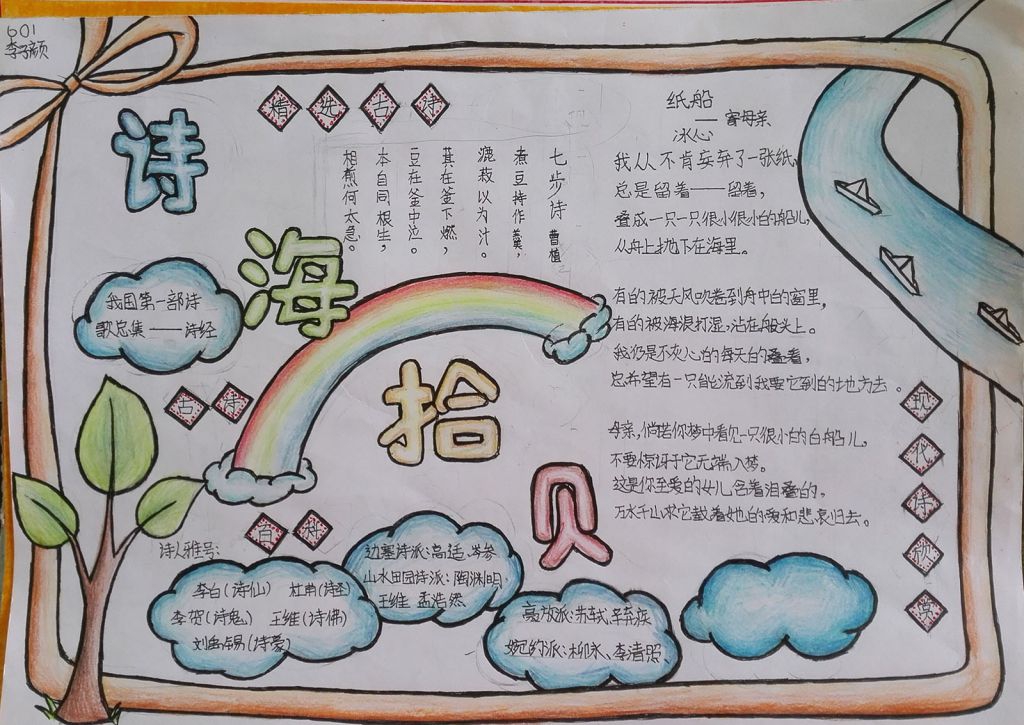 601
李子颜
诗
海
拾
贝
精选古诗
七步诗 曹植
煮豆持作羹，
漉菽以为汁。
萁在釜下燃，
豆在釜中泣。
本自同根生，
相煎何太急。
纸船
——寄母亲
冰心
我从不肯妄弃了一张纸，
总是留着——留着，
叠成一只一只很小很小白的船儿，
从舟上抛下在海里。
有的被天风吹卷到舟中的窗里，
有的被海浪打湿，沾在船头上。
我仍是不灰心的每天的叠着，
总希望有一只能流到我要它到的地方去。
母亲，倘若你梦中看见一只很小的白船儿，
不要惊讶于它无端入梦。
这是你至爱的女儿含着泪叠的，
万水千山求它载着她的爱和悲哀归去。
现代诗欣赏
我国第一部诗
歌总集——诗经
古诗
百科
诗人雅号：
李白(诗仙) 杜甫(诗圣)
李贺(诗鬼) 王维(诗佛)
刘禹锡(诗豪)
边塞诗派：高适、岑参
山水田园诗派：陶渊明、
王维 孟浩然
豪放派：苏轼、辛弃疾
婉约派：柳永、李清照